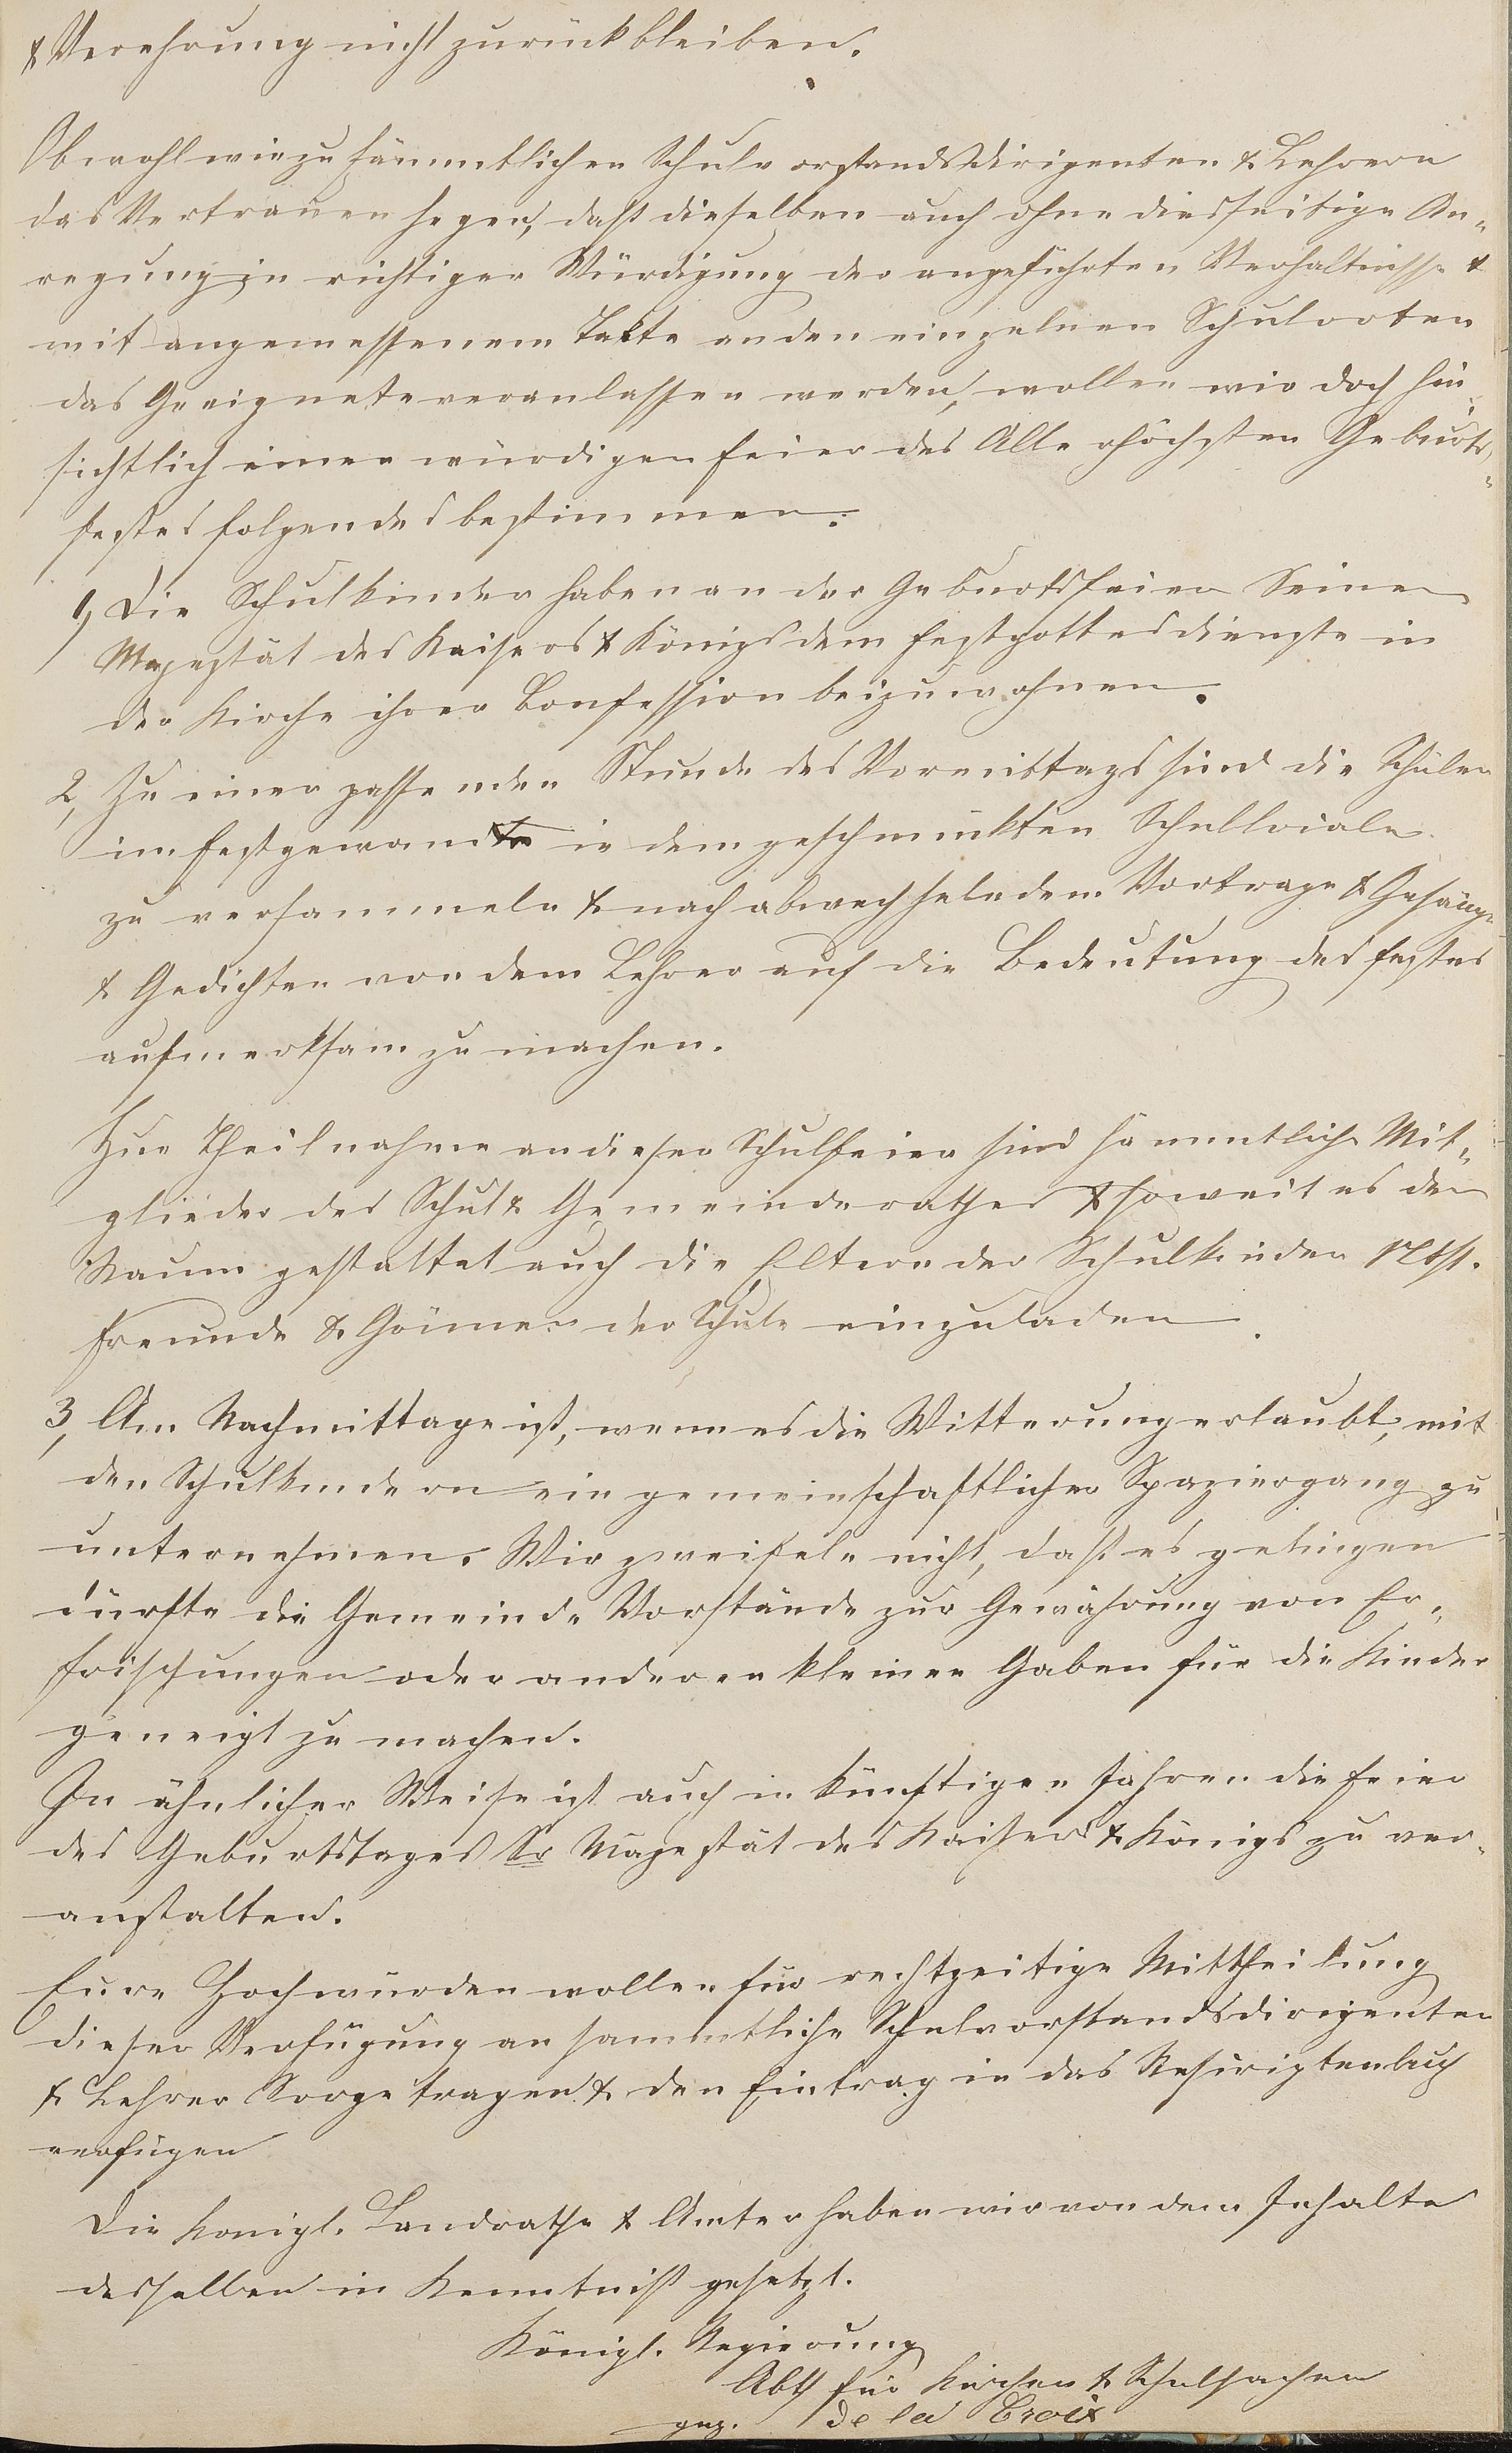 & Verehrung nicht zurückbleiben.
Obwohl wir zu sämmtlichen Schulvorstandsdirigenten & Lehrern
das Vertrauen hegen, daß dieselben auch ohne diesseitige An-
regung in richtiger Würdigung der angeführten Verhältnisse &
mit angemessenem Takte an den einzelnen Schulorten
das Geeignete veranlassen werden, wollen wir doch hin-
sichtlich einer würdigen Feier des Allerhöchsten Geburts-
festes folgendes bestimmen:
1, Die Schulkinder haben an der Geburtsfeier Seiner
Majestät des Kaisers & Königs dem Festgottesdienste in
der Kirche ihrer Confession beizuwohnen.
2, Zu einer passenden Stunde des Vormittags sind die Schüler
im Festgewande in dem geschmückten Schullocale
zu versammeln & nach abwechselndem Vortrage & Gesänge
& Gedichten von dem Lehrer auf die Bedeutung des Festes
aufmerksam zu machen.
Zur Theilnahme an dieser Schulfeier sind sämmtliche Mit-
glieder des Schul & Gemeinderathes & soweit es der
Raum gestattet auch die Eltern der Schulkinder Nbst.
Freunde & Gönner der Schule einzuladen.
3, Am Nachmittage ist, wenn es die Witterung erlaubt, mit
den Schulkindern ein gemeinschaftlicher Spaziergang zu
unternehmen. Wir zweifeln nicht, daß es gelingen
dürfte die Gemeinde Vorstände zur Gewährung von Er-
frischungen oder anderen kleinen Gaben für die Kinder
geneigt zu machen.
In ähnlicher Weise ist auch in künftigen Jahren die Feier
des Geburtstages Sr Majestät des Kaisers & Königs zu ver-
anstalten.
Eure Hochwürden wollen für rechtzeitige Mittheilung
dieser Verfügung an sämmtliche Schulvorstandsdirigenten
& Lehrer Sorge tragen & den Eintrag in das Rescriptenbuch
verfügen
Die Königl. Landräthe & Ämter haben wir von dem Inhalte
desselben in Kenntniß gesetzt.
Königl. Regierung
Abth für Kirchen & Schulsachen
gez. de la Croix